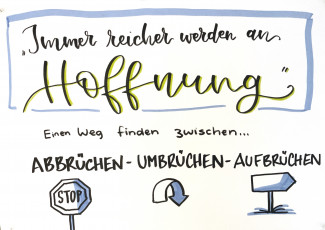 „Immer reicher werden an
Hoffnung"
Einen Weg finden zwischen...
ABBRÜCHEN - UMBRÜCHEN - AUFBRÜCHEN
STOP